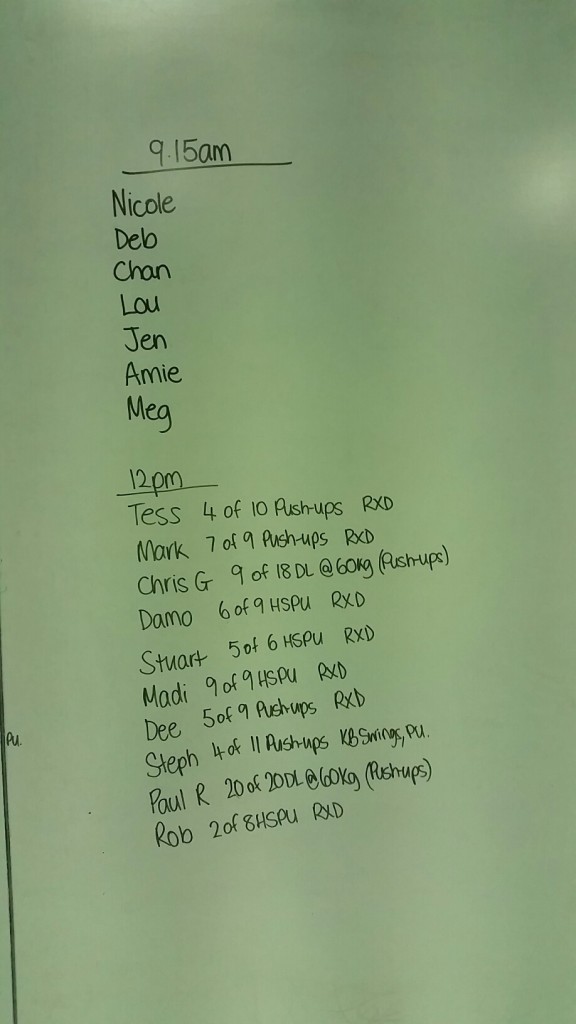 9.15am
Nicole
Deb
Chan
Lou
Jen
Amie
Meg
12pm
Tess 4 of 10 Push-ups RXD
Mark 7 of 9 Push-ups RXD
Chris G 9 of 18 DL @ 60kg (Push-ups)
Damo 6 of 9 HSPU RXD
Stuart 5 of 6 HSPU RXD
Madi 9 of 9 HSPU RXD
Dee 5 of 9 Push-ups RXD
Steph 4 of 11 Push-ups KB Swings, PU.
Paul R 20 of 20 DL @ 60kg (Push-ups)
Rob 2 of 8 HSPU RXD
PU.